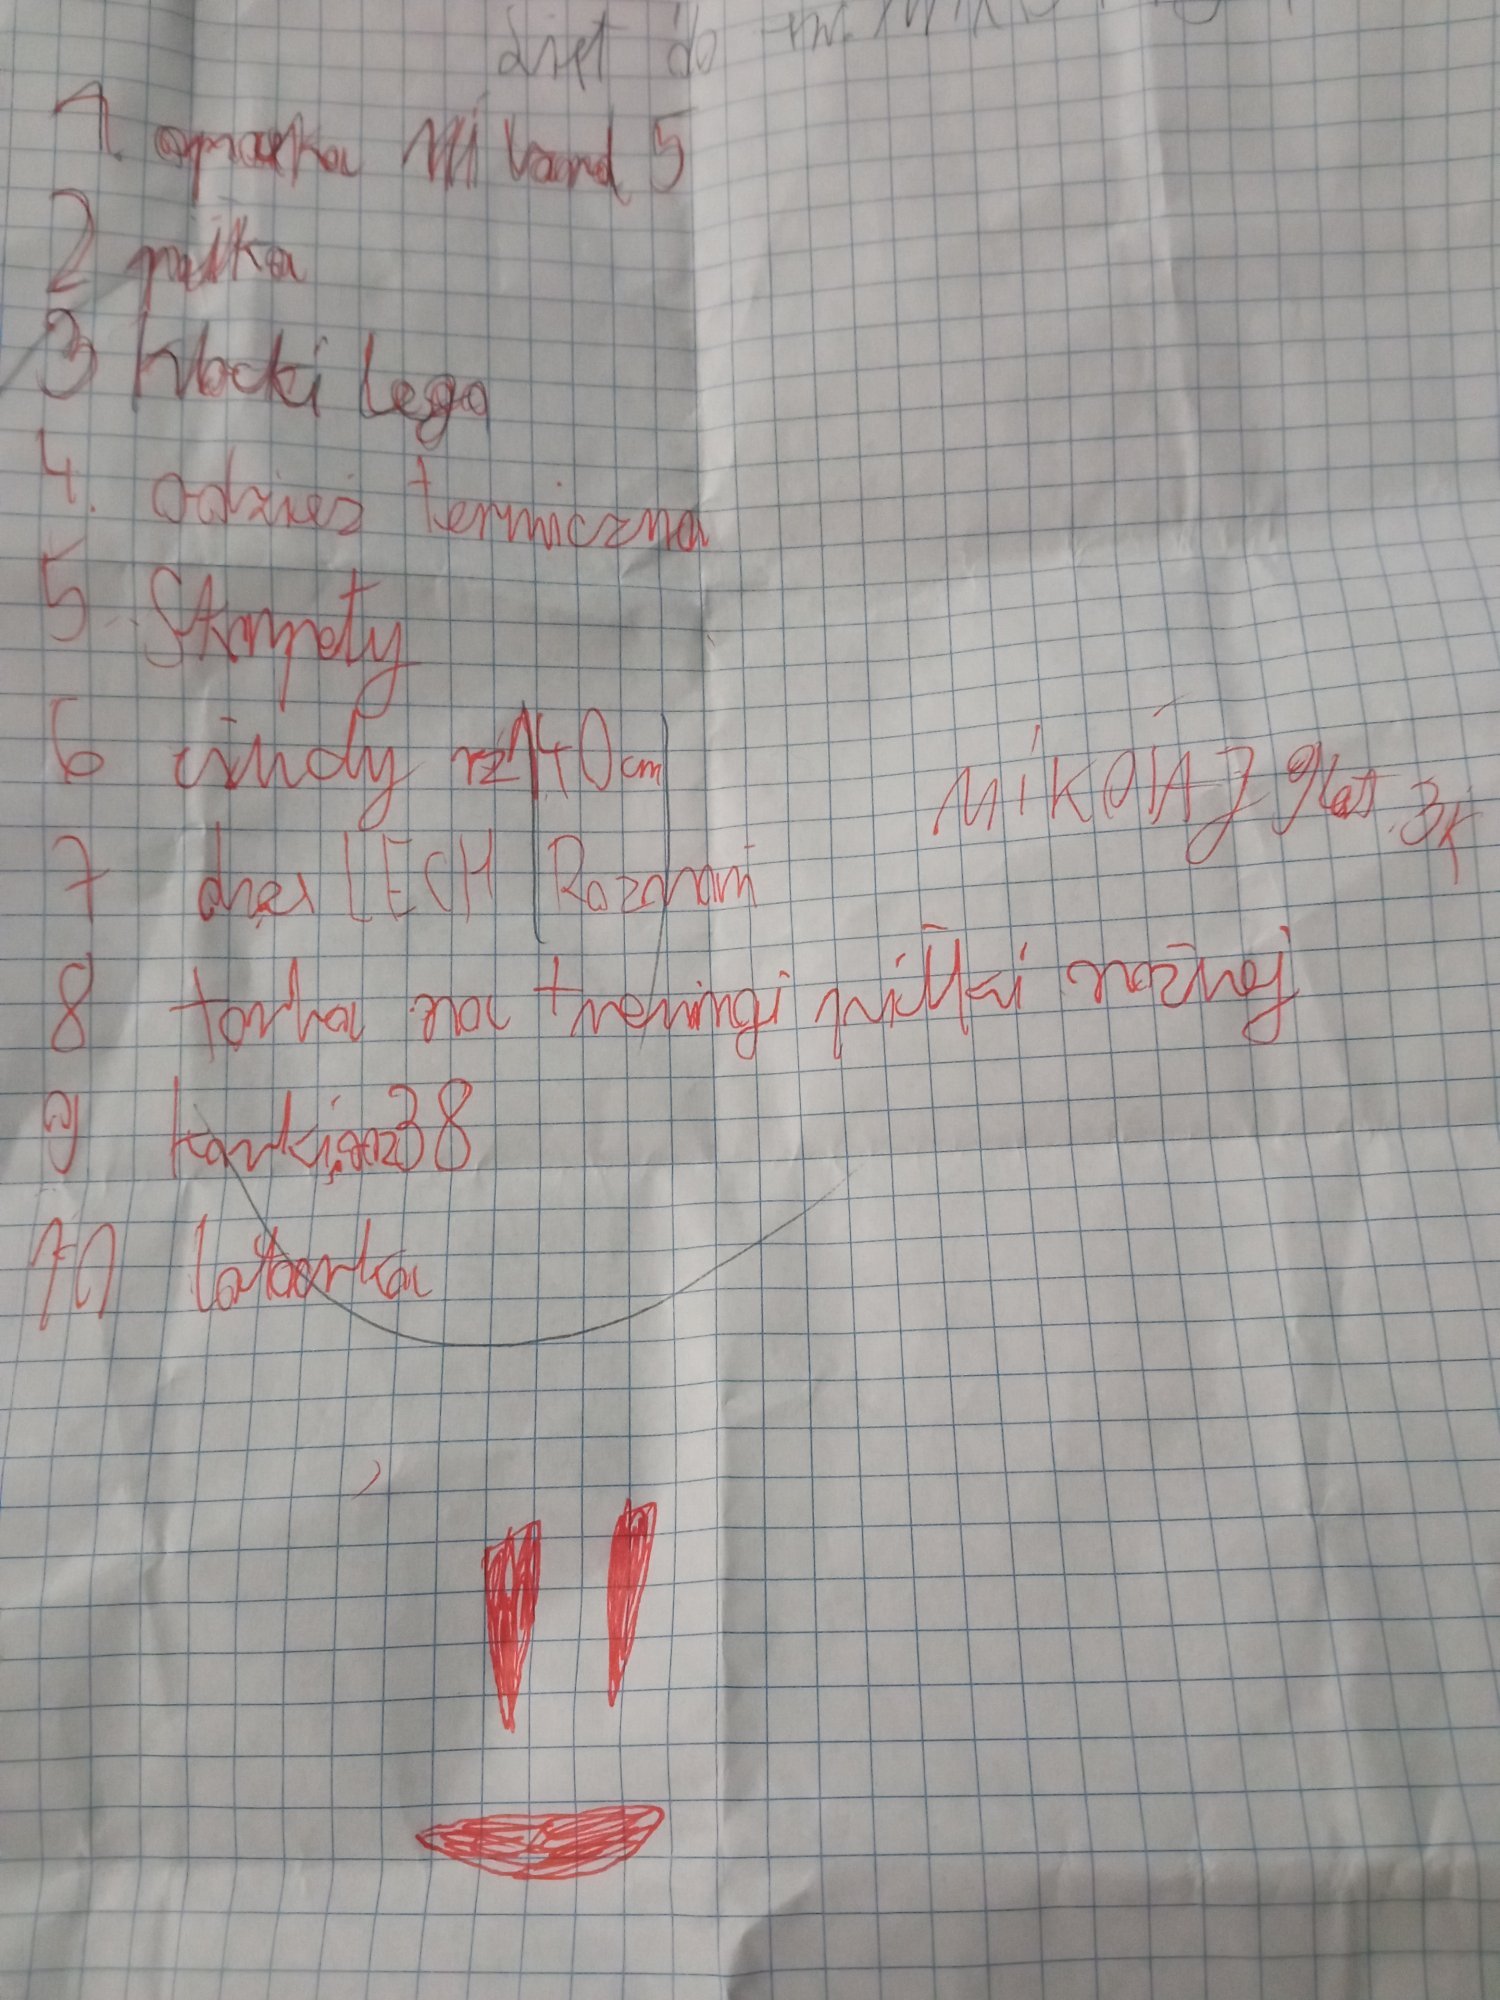 List do św. Mik
1. opaska Mi band 5
2 piłka
3 klocki lego
4. odzież termiczna
5 Skarpety
6 rz 140 cm
7 dres LECH Poznań
8 torba na treningi piłki nożnej
9 korki roz 38
10 latarka
MIKOŁAJ 9 lat. 3k